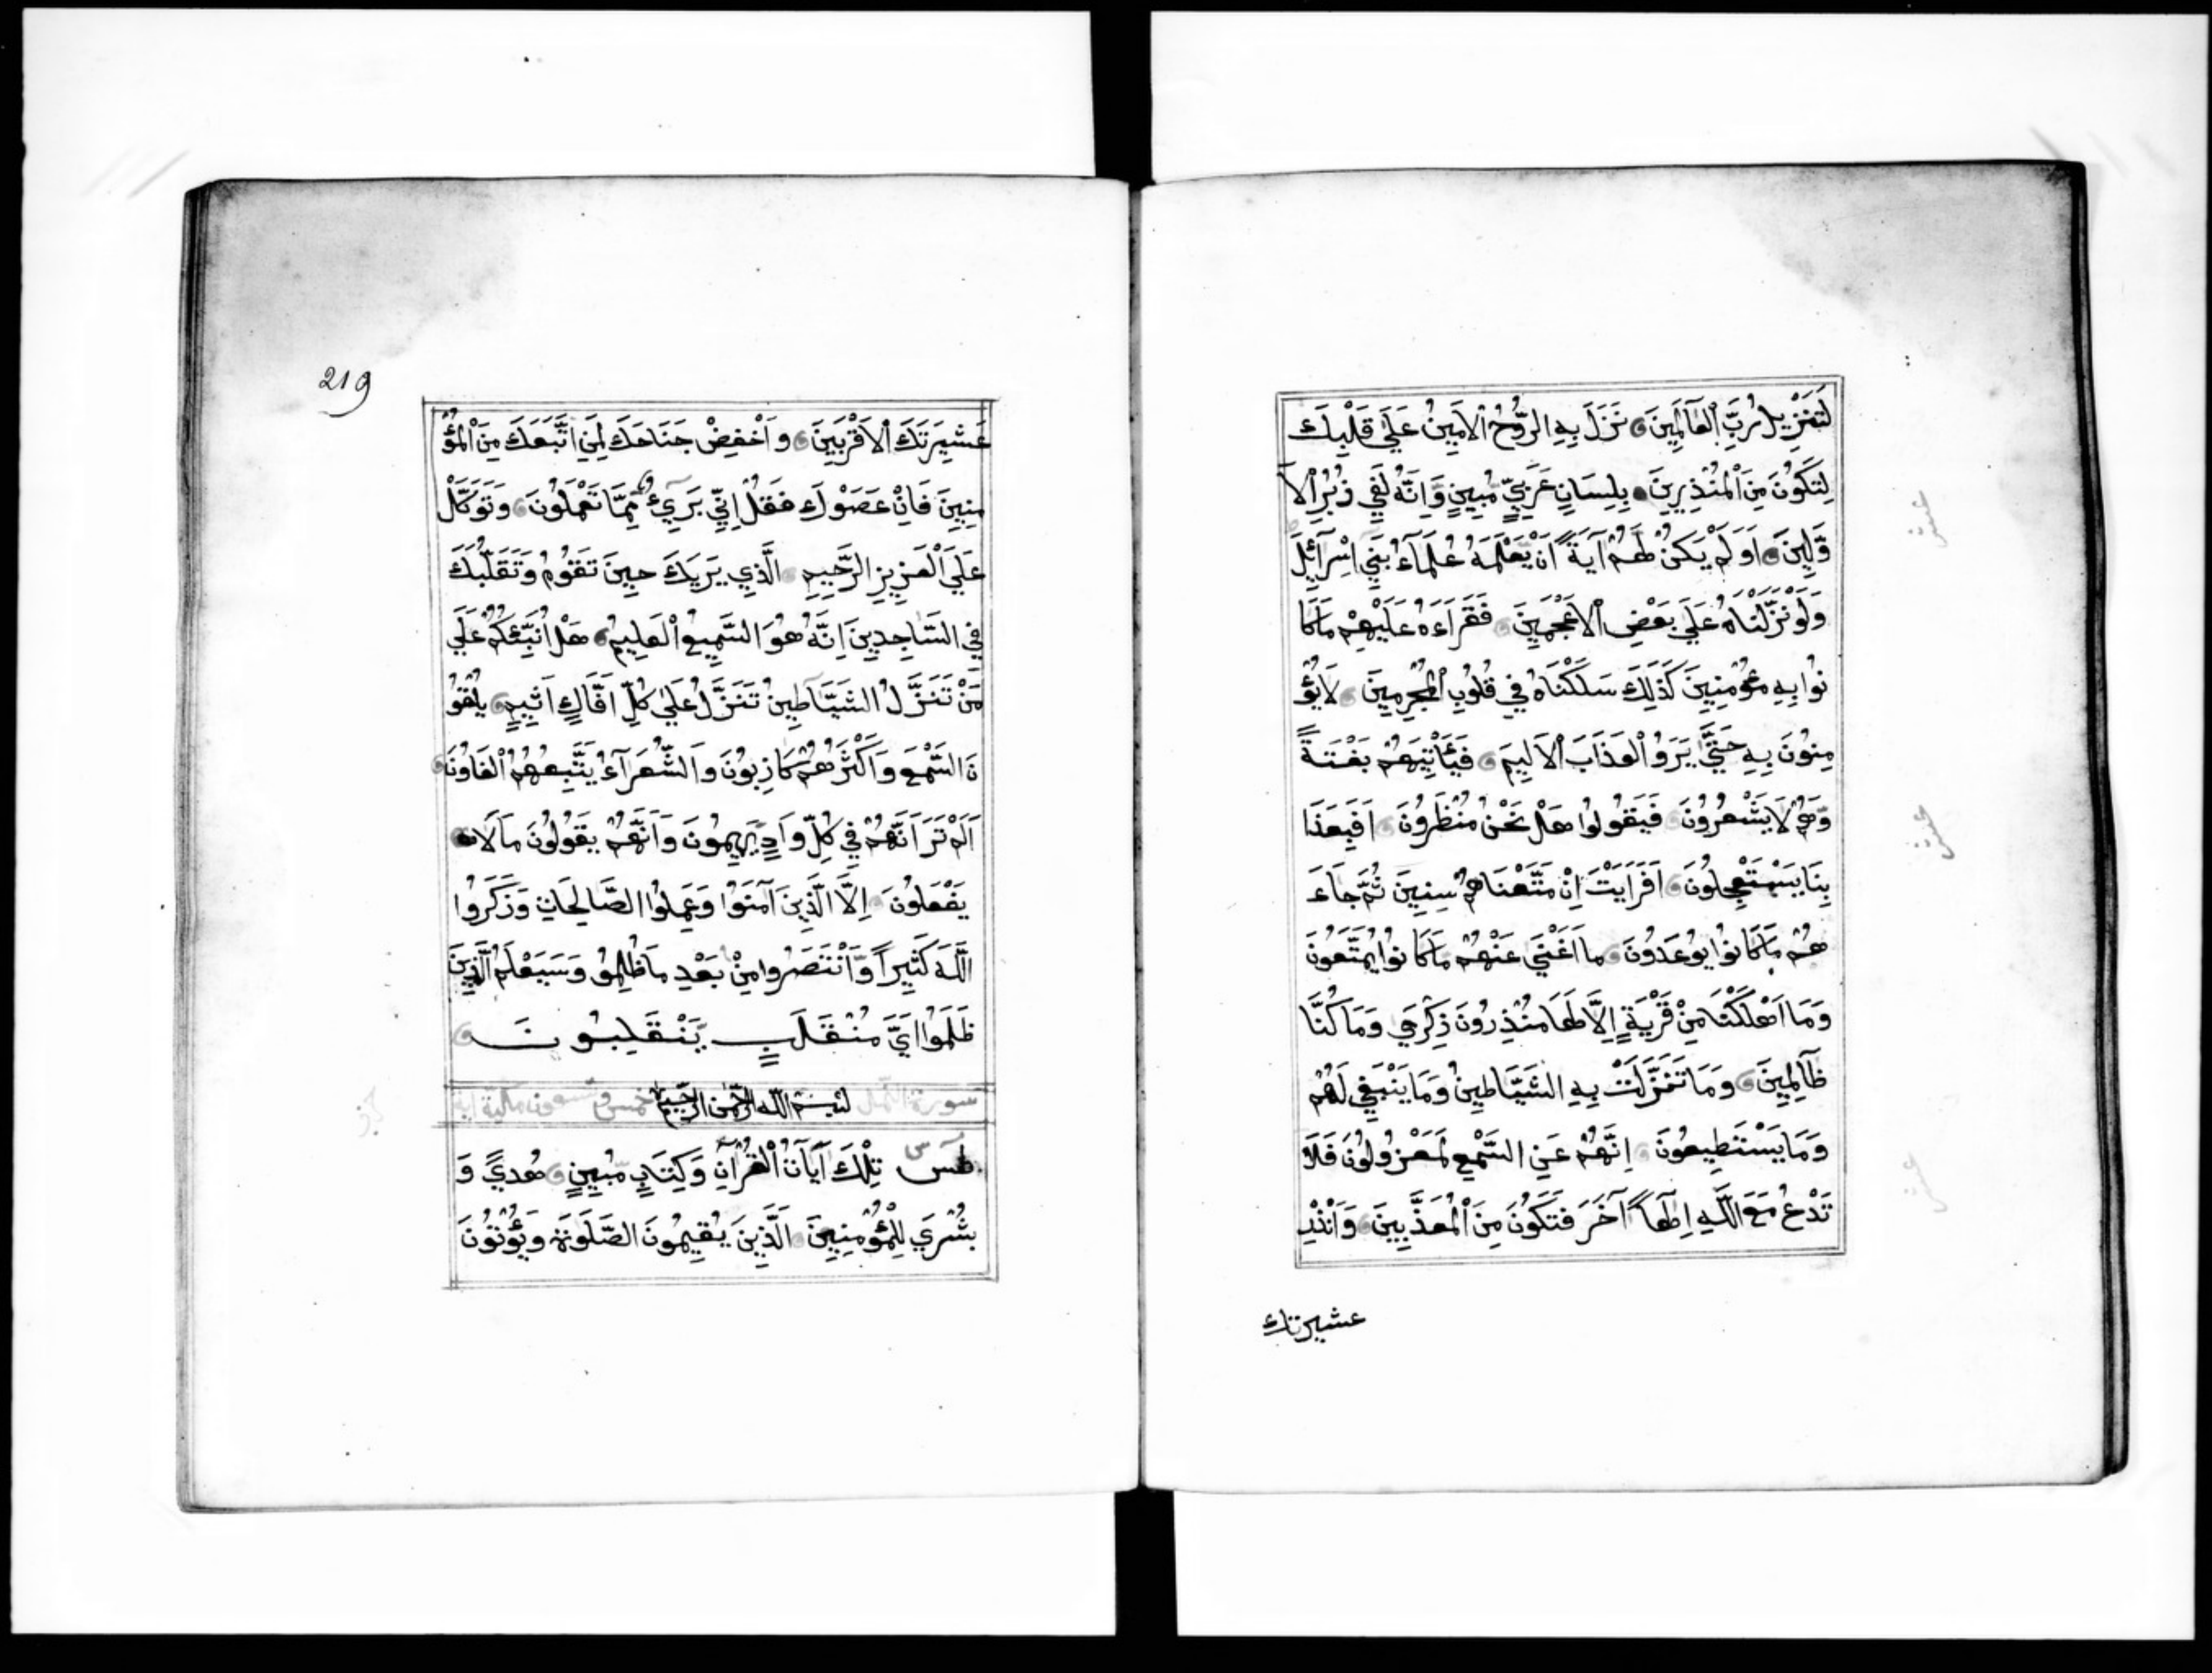 لَتَنْزِيلُ رَبِّ الْعَالَمِينَ نَزَلَ بِهِ الرُّوحُ الْاَمِينُ عَلَي قَلْبِكَ
لِتَكُونَ مِنَ الْمُنْذِرِينَ بِلِسَانٍ عَرَبِيٍّ مُبِينٍ وَاِنَّهُ لَفِي زُبُرِ الْاَ
وَّلِينَ اَوَلَمْ يَكُنْ لَهُمْ آيَةً اَنْ يَعْلَمَهُ عُلَمَاءُ بَنِي اِسْرَآئِلَ
وَلَوْ نَزَّلْنَاهُ عَلَي بَعْضِ الْاَعْجَمِينَ فَقَرَاَهُ عَلَيْهِمْ مَا كَا
نُوا بِهِ مُؤْمِنِينَ كَذَلِكَ سَلَكْنَاهُ فِي قُلُوبِ الْمُجْرِمِينَ لَا يُؤْ
مِنُونَ بِهِ حَتَّي يَرَوُ الْعَذَابَ الْاَلِيمَ فَيَاْتِيَهُمْ بَغْتَةً
وَهُمْ لَا يَشْعُرُونَ فَيَقُولُوا هَلْ نَحْنُ مُنْظَرُونَ اَفَبِعَذَا
بِنَا يَسْتَعْجِلُونَ اَفَرَاَيْتَ اِنْ مَتَّعْنَاهُمْ سِنِينَ ثُمَّ جَاءَ
هُمْ مَا كَانُوا يُوعَدُونَ مَا اَغْنَي عَنْهُمْ مَا كَانُوا يُمَتَّعُونَ
وَمَا اَهْلَكْنَا مِنْ قَرْيَةٍ اِلَّا لَهَا مُنْذِرُونَ ذِكْرَي وَمَا كُنَّا
ظَالِمِينَ وَمَا تَنَزَّلَتْ بِهِ الشَّيَاطِينُ وَمَا يَنْبَغِي لَهُمْ
وَمَا يَسْتَطِيعُونَ اِنَّهُمْ عَنِ السَّمْعِ لَمَعْزُولُونَ فَلَا
تَدْعُ مَعَ اللَّهِ اِلَهاً آخَرَ فَتَكُونَ مِنَ الْمُعَذَّبِينَ وَاَنْذِرْ
عشيرتك
عشر
عشر
عشر
219
عَشِيرَتَكَ الْاَقْرَبِينَ وَاَخْفِضْ جَنَاحَكَ لِمَنِ اتَّبَعَكَ مِنَ الْمُؤْ
مِنِينَ فَاِنْ عَصَوْكَ فَقُلْ اِنِّي بَرِيءٌ مِمَّا تَعْمَلُونَ وَتَوَكَّلْ
عَلَي الْعَزِيزِ الرَّحِيمِ الَّذِي يَرَيكَ حِينَ تَقُومُ وَتَقَلُّبَكَ
فِي السَّاجِدِينَ اِنَّهُ هُوَ السَّمِيعُ الْعَلِيمُ هَلْ اُنَبِّئُكُمْ عَلَي
مَنْ تَنَزَّلُ الشَّيَاطِينُ تَنَزَّلُ عَلَي كُلِّ اَفَّاكٍ اَثِيمٍ يُلْقُو
نَ السَّمْعَ وَاَكْثَرُهُمْ كَاذِبُونَ وَالشُّعَرَآءُ يَتَّبِعُهُمُ الْغَاوُنَ
اَلَمْ تَرَ اَنَّهُمْ فِي كُلِّ وَادٍ يَهِيمُونَ وَاَنَّهُمْ يَقُولُونَ مَا لَا
يَفْعَلُونَ اِلَّا الَّذِينَ آمَنُوا وَعَمِلُوا الصَّالِحَاتِ وَذَكَرُوا
اللَّهَ كَثِيراً وَانْتَصَرُوا مِنْ بَعْدِ مَا ظُلِمُو وَسَيَعْلَمُ الَّذِينَ
ظَلَمُوا اَيَّ مُنْقَلَبٍ يَنْقَلِبُونَ
سورة النمل بسم الله الرحمن الرحيم خمس وتسعون مكية اية
طس تِلْكَ آيَاتُ الْقُرْآنِ وَكِتَابٍ مُبِينٍ هُديً وَ
بُشْرَي لِلْمُؤْمِنِينَ الَّذِينَ يُقِيمُونَ الصَّلَوةَ وَيُؤْتُونَ